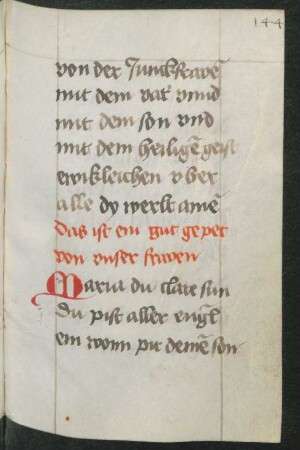 144
von der Junckfrawē
mit dem vatʼ vnnd
mit dem son vnd
mit dem heiligē geist
ewikleichen vber
alle dy werlt amē
das ist ein gut gepet
von vnser frawen
Maria du clare sun
du pist aller engl
ein wonn pit deinē son